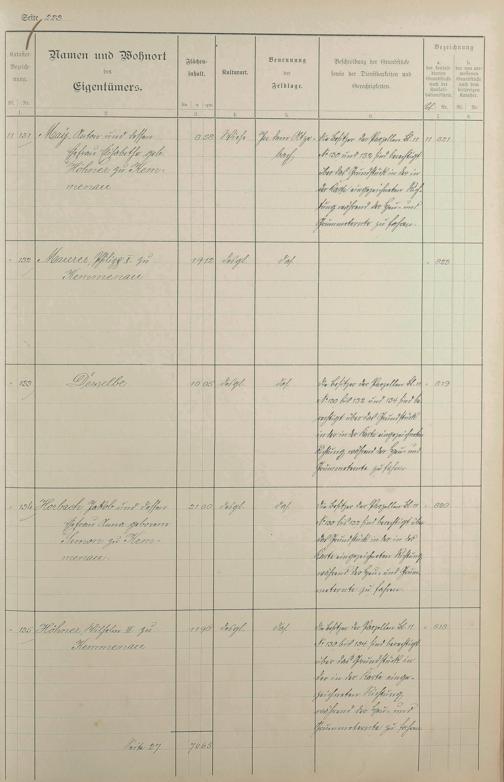 Seite 223.
Kataster-
Bezeich-
nung.
Bl. Nr.
Namen und Wohnort
des
Eigentümers.
Flächen-
inhalt.
Kulturart.
Benennung
der
Feldlage.
Beschreibung der Grundstücke
sowie der Dienstbarkeiten und
Gerechtigkeiten.
Bezeichnung
1. 2. 3. 4. 5. 6. 7. 8.
11 131 May, Anton und dessen
Ehefrau Elisabetha geb.
Höhner zu Kem-
menau
Wiese
Die Besitzer der Parzellen Bl. 11
Nr 130 und 132 sind berechtigt
über das Grundstück in der in
der Karte eingezeichneten Rich-
tung während der Heu- und
Grummeternte zu fahren.
11 821
" 132 Maurer, Philipp I. zu
Kemmenau
19 12 desgl. das.
" 133 Derselbe
10 05 desgl. das.
Die Besitzer der Parzellen Bl. 11
Nr 130 bis 132 und 134 sind be-
rechtigt über das Grundstück
in der in der Karte eingezeichneten
Richtung während der Heu- und
Grummeternte zu fahren
" 819
" 134 Horbach, Jakob und dessen
Ehefrau Anna geborene
Simon zu Kem-
menau
desgl. das.
Die Besitzer der Parzellen Bl. 11
Nr 130 bis 133 sind berechtigt über
das Grundstück in der in der
Karte eingezeichneten Richtung
während der Heu- und Grum-
meternte zu fahren
" 820
" 135 Höhner, Wilhelm III. zu
Kemmenau
desgl. das.
Die Besitzer der Parzellen Bl. 11
Nr 130 bis 134 sind berechtigt
über das Grundstück in
der in der Karte einge-
zeichneten Richtung
während der Heu- und
Grummeternte zu fahren
" 818
Seite 27 70 65